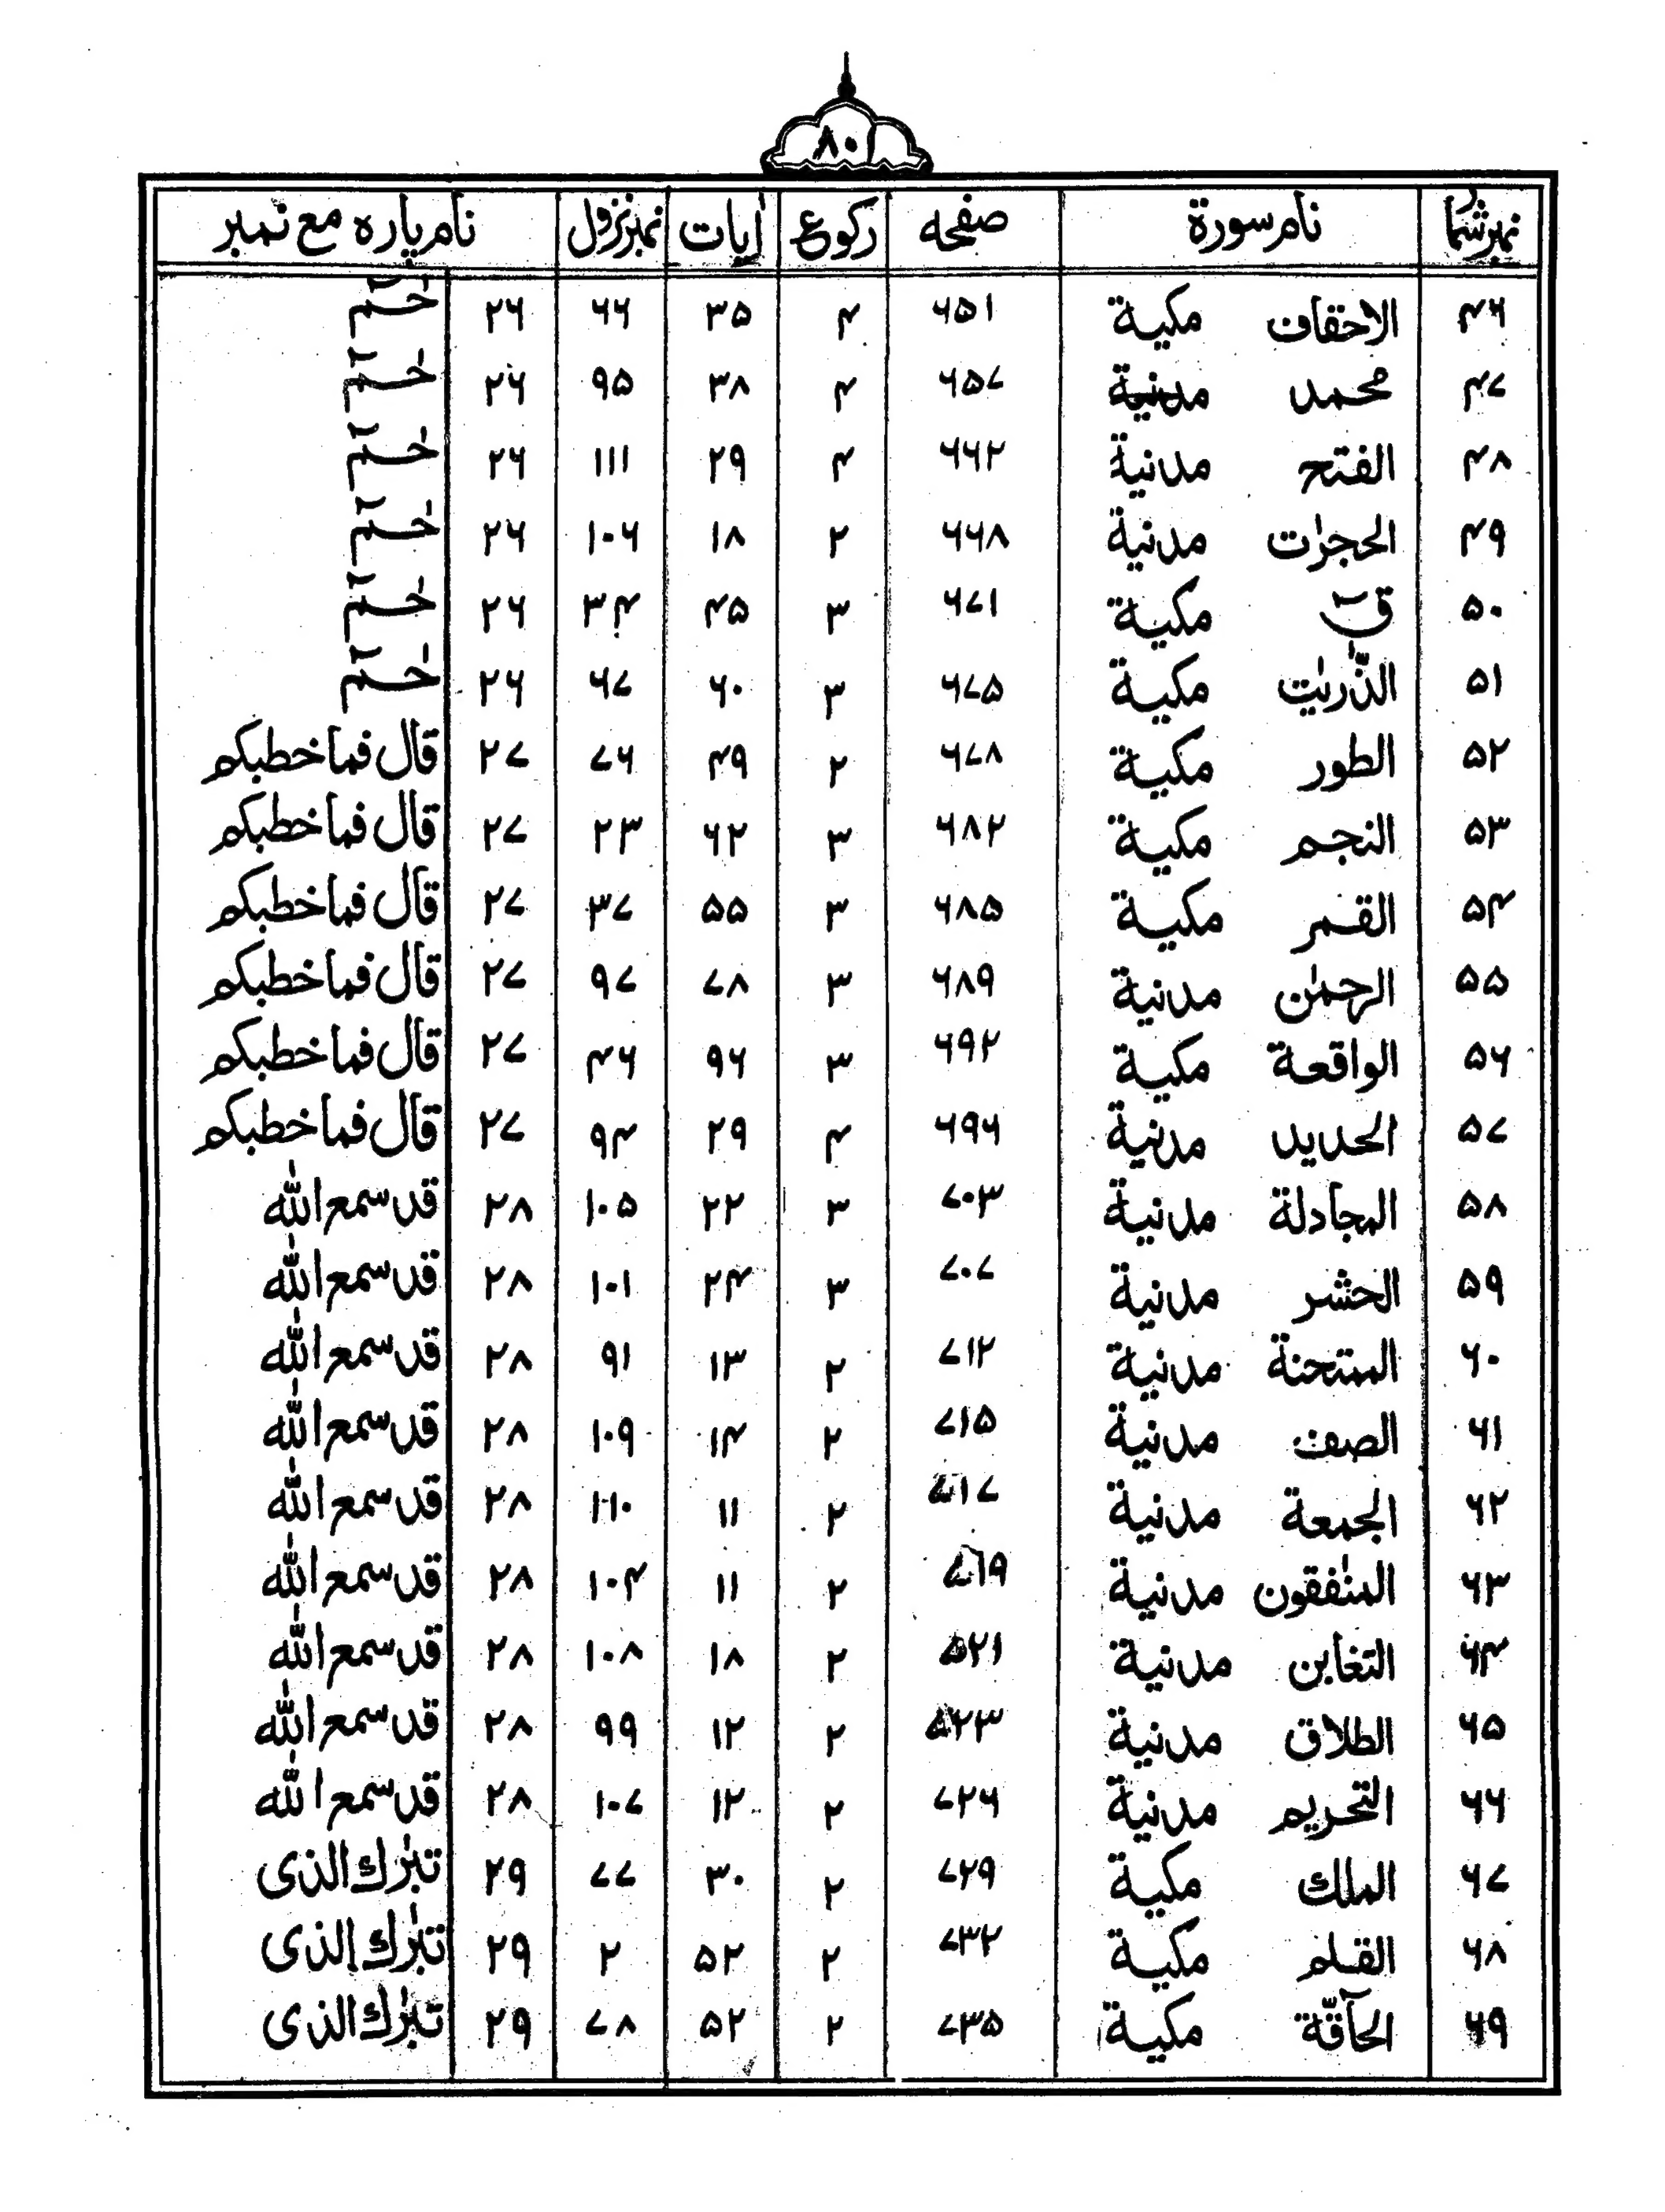 ۸۰۱
نمبرشمار نام سورة صفحه رکوع اٰیات نمبرنزول نام پاره مع نمبر
۴۶ الاحقاف مکیة ۶۵۱ ۴ ۳۵ ۶۶ ۲۶ حٰـمٓ
۴۷ محمد مدنیة ۶۵۷ ۴ ۳۸ ۹۵ ۲۶ حٰـمٓ
۴۸ الفتح مدنیة ۶۶۲ ۴ ۲۹ ۱۱۱ ۲۶ حٰـمٓ
۴۹ الحجرٰت مدنیة ۶۶۸ ۲ ۱۸ ۱۰۶ ۲۶ حٰـمٓ
۵۰ قٓ مکیة ۶۷۱ ۳ ۴۵ ۳۴ ۲۶ حٰـمٓ
۵۱ الذّٰریٰت مکیة ۶۷۵ ۳ ۶۰ ۶۷ ۲۶ حٰـمٓ
۵۲ الطور مکیة ۶۷۸ ۲ ۴۹ ۷۶ ۲۷ قال فما خطبکم
۵۳ النجم مکیة ۶۸۲ ۳ ۶۲ ۲۳ ۲۷ قال فما خطبکم
۵۴ القمر مکیة ۶۸۵ ۳ ۵۵ ۳۷ ۲۷ قال فما خطبکم
۵۵ الرحمٰن مدنیة ۶۸۹ ۳ ۷۸ ۹۷ ۲۷ قال فما خطبکم
۵۶ الواقعة مکیة ۶۹۲ ۳ ۹۶ ۴۶ ۲۷ قال فما خطبکم
۵۷ الحدید مدنیة ۶۹۶ ۴ ۲۹ ۹۴ ۲۷ قال فما خطبکم
۵۸ المجادلة مدنیة ۷۰۳ ۳ ۲۲ ۱۰۵ ۲۸ قد سمع الله
۵۹ الحشر مدنیة ۷۰۷ ۳ ۲۴ ۱۰۱ ۲۸ قد سمع الله
۶۰ الممتحنة مدنیة ۷۱۲ ۲ ۱۳ ۹۱ ۲۸ قد سمع الله
۶۱ الصف مدنیة ۷۱۵ ۲ ۱۴ ۱۰۹ ۲۸ قد سمع الله
۶۲ الجمعة مدنیة ۲ ۱۱ ۱۱۰ ۲۸ قد سمع الله
۶۳ المنٰفقون مدنیة ۲ ۱۱ ۱۰۴ ۲۸ قد سمع الله
۶۴ التغابن مدنیة ۲ ۱۸ ۱۰۸ ۲۸ قد سمع الله
۶۵ الطلاق مدنیة ۲ ۱۲ ۹۹ ۲۸ قد سمع الله
۶۶ التحریم مدنیة ۷۲۶ ۲ ۱۲ ۱۰۷ ۲۸ قد سمع الله
۶۷ الملك مکیة ۷۲۹ ۲ ۳۰ ۷۷ ۲۹ تبٰرك الذی
۶۸ القلم مکیة ۷۳۲ ۲ ۵۲ ۲ ۲۹ تبٰرك الذی
۶۹ الحآقّة مکیة ۷۳۵ ۲ ۵۲ ۷۸ ۲۹ تبٰرك الذی